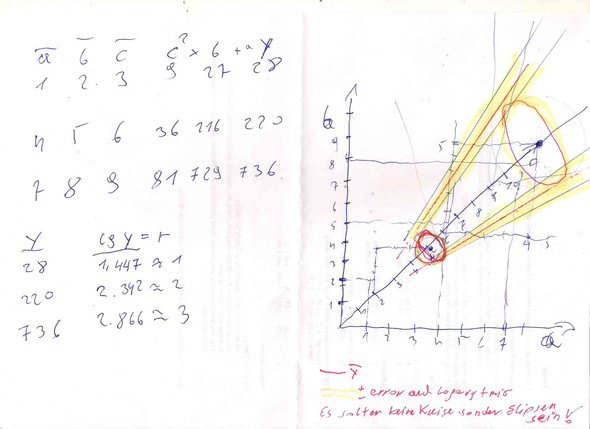 a̅ b̅ c̅ c² × b + a Y
1 2. 3 9 27 28
4 5 6 36 216 220
7 8 9 81 729 736.
Y lg Y = r
28 1,447 ≈ 1
220 2.342 ≈ 2
736 2.866 ≈ 3
b
9
8
7
6
5
4
3
2
1
5
10
9
8
7
5
4
3
2
4 5
1 2 3 4 5 6 7 a
r̅
± error auf Logarytmis
Es sollten keine Kreise sonder. Elipsen
sein!